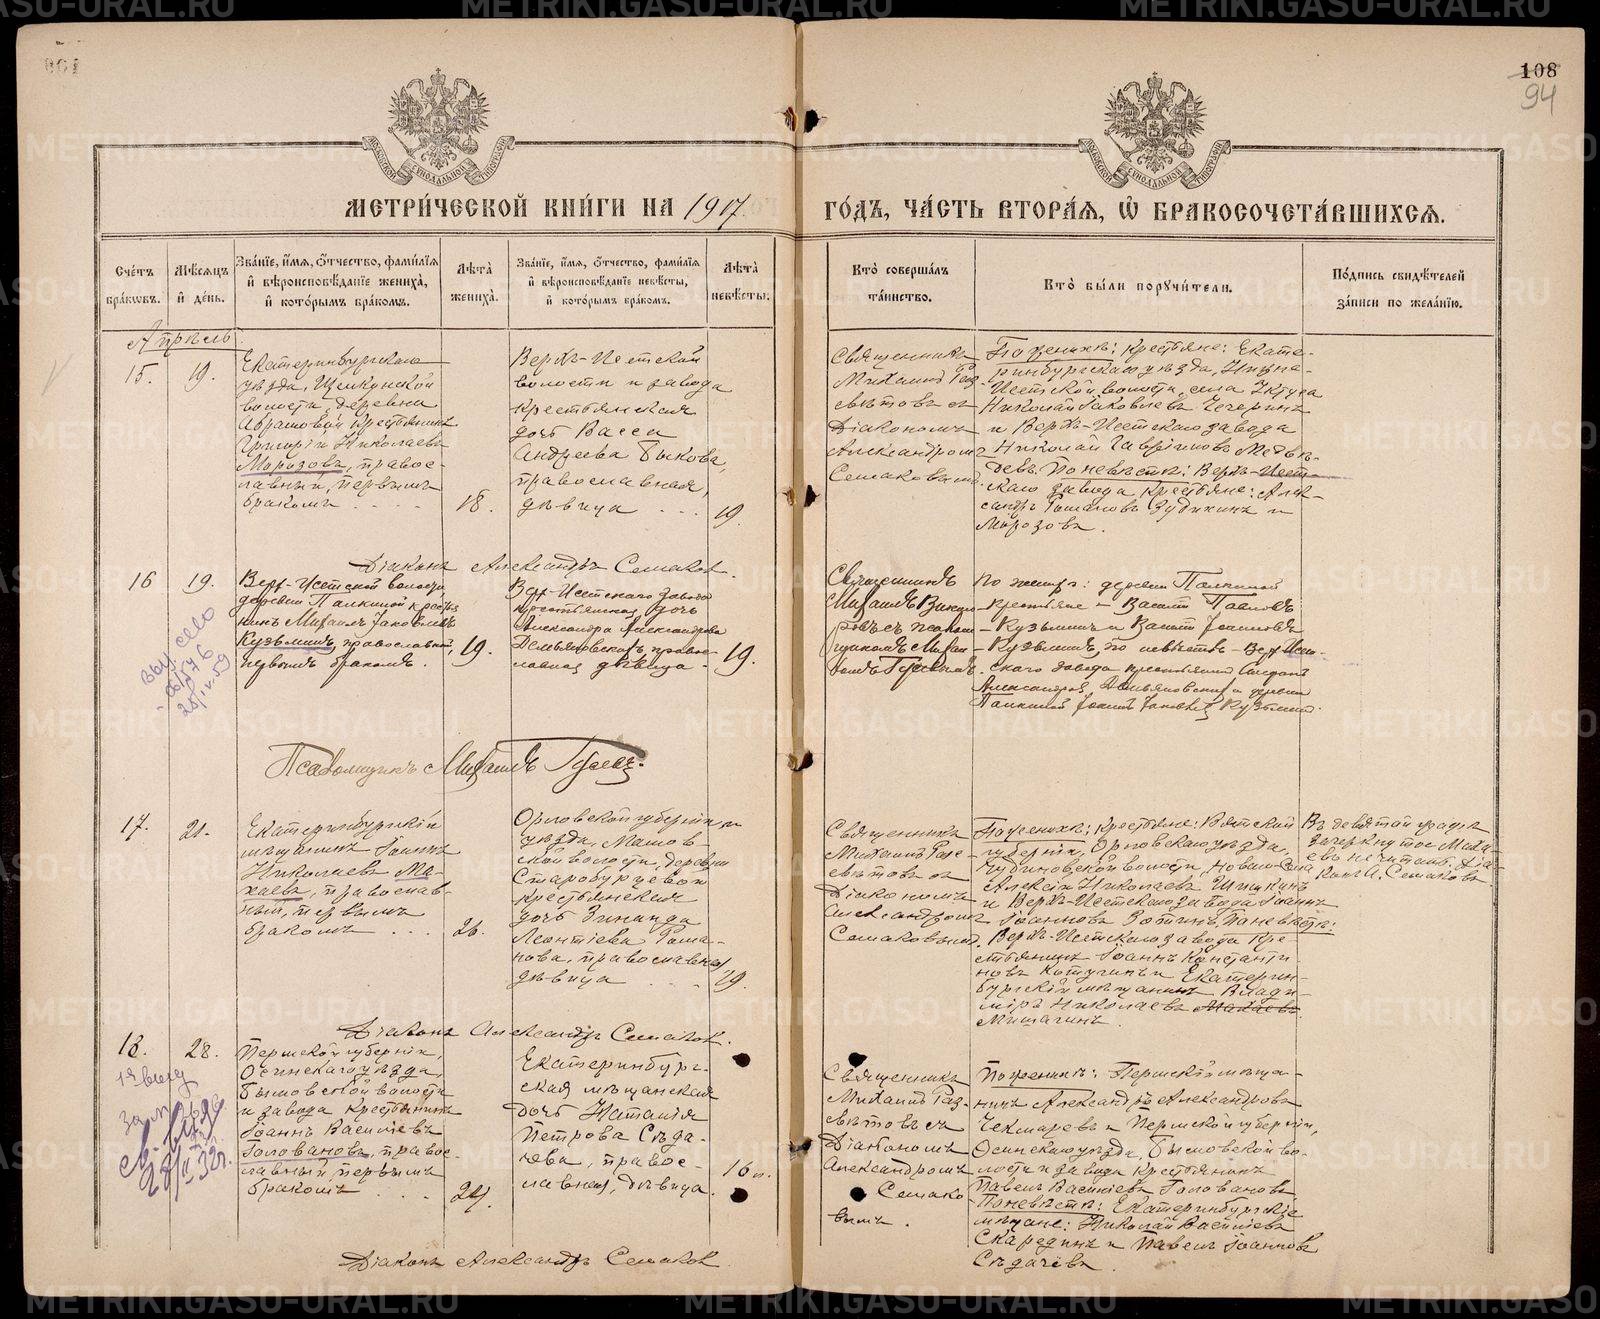 108
94
МЕТРИ́ЧЕСКОЙ КНИ́ГИ НА 1917
ГО́ДЪ, ЧА́СТЬ ВТОРА́Я, Ѡ҆ БРАКОСОЧЕТА́ВШИХСЯ.
Сче́тъ бра́кѡвъ.
Мѣ́сяцъ и҆ де́нь.
Зва́нїе, и҆́мя, ѻ҆́тчество, фами́лїя
и҆ вѣроисповѣ́данїе жениха̀,
и҆ кото́рымъ бра́комъ.
Лѣ́та жениха̀.
Зва́нїе, и҆́мя, ѻ҆́тчество, фами́лїя
и҆ вѣроисповѣ́данїе невѣ́сты,
и҆ кото́рымъ бра́комъ.
Лѣ́та невѣ́сты.
Кто̀ соверша́лъ
та́инство.
Кто̀ бы́ли порꙋчи́тели.
По́дпись свидѣ́телей
за́писи по жела́нїю.
Апрѣль
15.
19.
Екатеринбургскаго
уѣзда, Щелкунской
волости, деревни
Абрамовой крестьянинъ
Григорій Николаевъ
Морозовъ, правос-
лавный, первымъ
бракомъ . . . .
18.
Верхъ-Исетской
волости и завода
крестьянская
дочь Васса
Андреева Быкова,
православная,
дѣвица . . .
19.
Священникъ
Михаилъ Раз-
свѣтовъ съ
Діакономъ
Александромъ
Семаковымъ.
По женихѣ: крестьяне: Екате-
ринбургскаго уѣзда, Нижне-
Исетской волости, села Уктуса
Николай Іаковлевъ Чечеринъ
и Верхъ-Исетскаго завода
Николай Гавріиловъ Медвѣ-
девъ. По невѣстѣ: Верхъ-Исет-
скаго завода крестьяне: Алек-
сандръ Романовъ Зудихинъ и
Морозовъ.
Діаконъ Александръ Семаковъ.
16
19.
Верх-Исетской волости
деревни Палкиной крестья
нинъ Михаилъ Іаковлевъ
Кузьминъ, православный,
первымъ бракомъ.
19.
Верх-Исетскаго завода
крестьянская дочь
Александра Александрова
Демьяновскихъ, правос-
лавная дѣвица.
19.
Священникъ
Михаилъ
съ псалом-
щикомъ Михаи-
ломъ Гусевымъ.
По жениху: деревни Палкиной
крестьяне – Василій Павловъ
Кузьминъ и Василій Іоанновъ
Кузьминъ, по невѣстѣ – Верх-Исет-
скаго завода крестьянинъ
Александровъ и деревни
Палкиной Кузьминъ.
28/IV.59
Псаломщикъ Михаилъ Гусевъ.
17.
21.
Екатеринбургскій
мѣщанинъ Іоаннъ
Николаевъ Ма-
каевъ, православ-
ный, первымъ
бракомъ . . .
26.
Орловской губерніи и
уѣзда,
волости, деревни
Старобурцевой
крестьянская
дочь Зинаида
Леонтіева Рома-
нова, православная,
дѣвица . . .
19.
Священникъ
Михаилъ Раз-
свѣтовъ съ
Діакономъ
Александромъ
Семаковымъ.
По женихѣ: крестьяне: Вятской
губерніи, Орловскаго уѣзда,
волости, села
Алексій Николаевъ Шишкинъ
и Верхъ-Исетскаго завода Іоаннъ
Іоанновъ Зотинъ. По невѣстѣ:
Верхъ-Исетскаго завода кре-
стьянинъ Іоаннъ Константи-
новъ и Екатерин-
бургскій мѣщанинъ Влади-
міръ Николаевъ Макаевъ
Мишагинъ.
Въ девятой графѣ
зачеркнутое Мака-
евъ не читать. Діа-
конъ А. Семаковъ.
Діаконъ Александръ Семаковъ.
18.
28.
Пермской губерніи,
Осинскаго уѣзда,
Бымовской волости
и завода крестьянинъ
Іоаннъ Василіевъ
Головановъ, правос-
лавный, первымъ
бракомъ . . .
24.
Екатеринбург-
ская мѣщанская
дочь Наталія
Петрова Сѣда-
чова, правос-
лавная, дѣвица.
16 л.
Священникъ
Михаилъ Раз-
свѣтовъ съ
Діакономъ
Александромъ
Семако-
вымъ.
По женихѣ: Пермскій мѣща-
нинъ Александръ Александровъ
Чекмаревъ и Пермской губерніи,
Осинскаго уѣзда, Бымовской во-
лости и завода крестьянинъ
Павелъ Василіевъ Головановъ.
По невѣстѣ: Екатеринбургскіе
мѣщане: Николай Василіевъ
Скарединъ и Павелъ Іоанновъ
Сѣдачёвъ.
Діаконъ Александръ Семаковъ.
METRIKI.GASO-URAL.RU